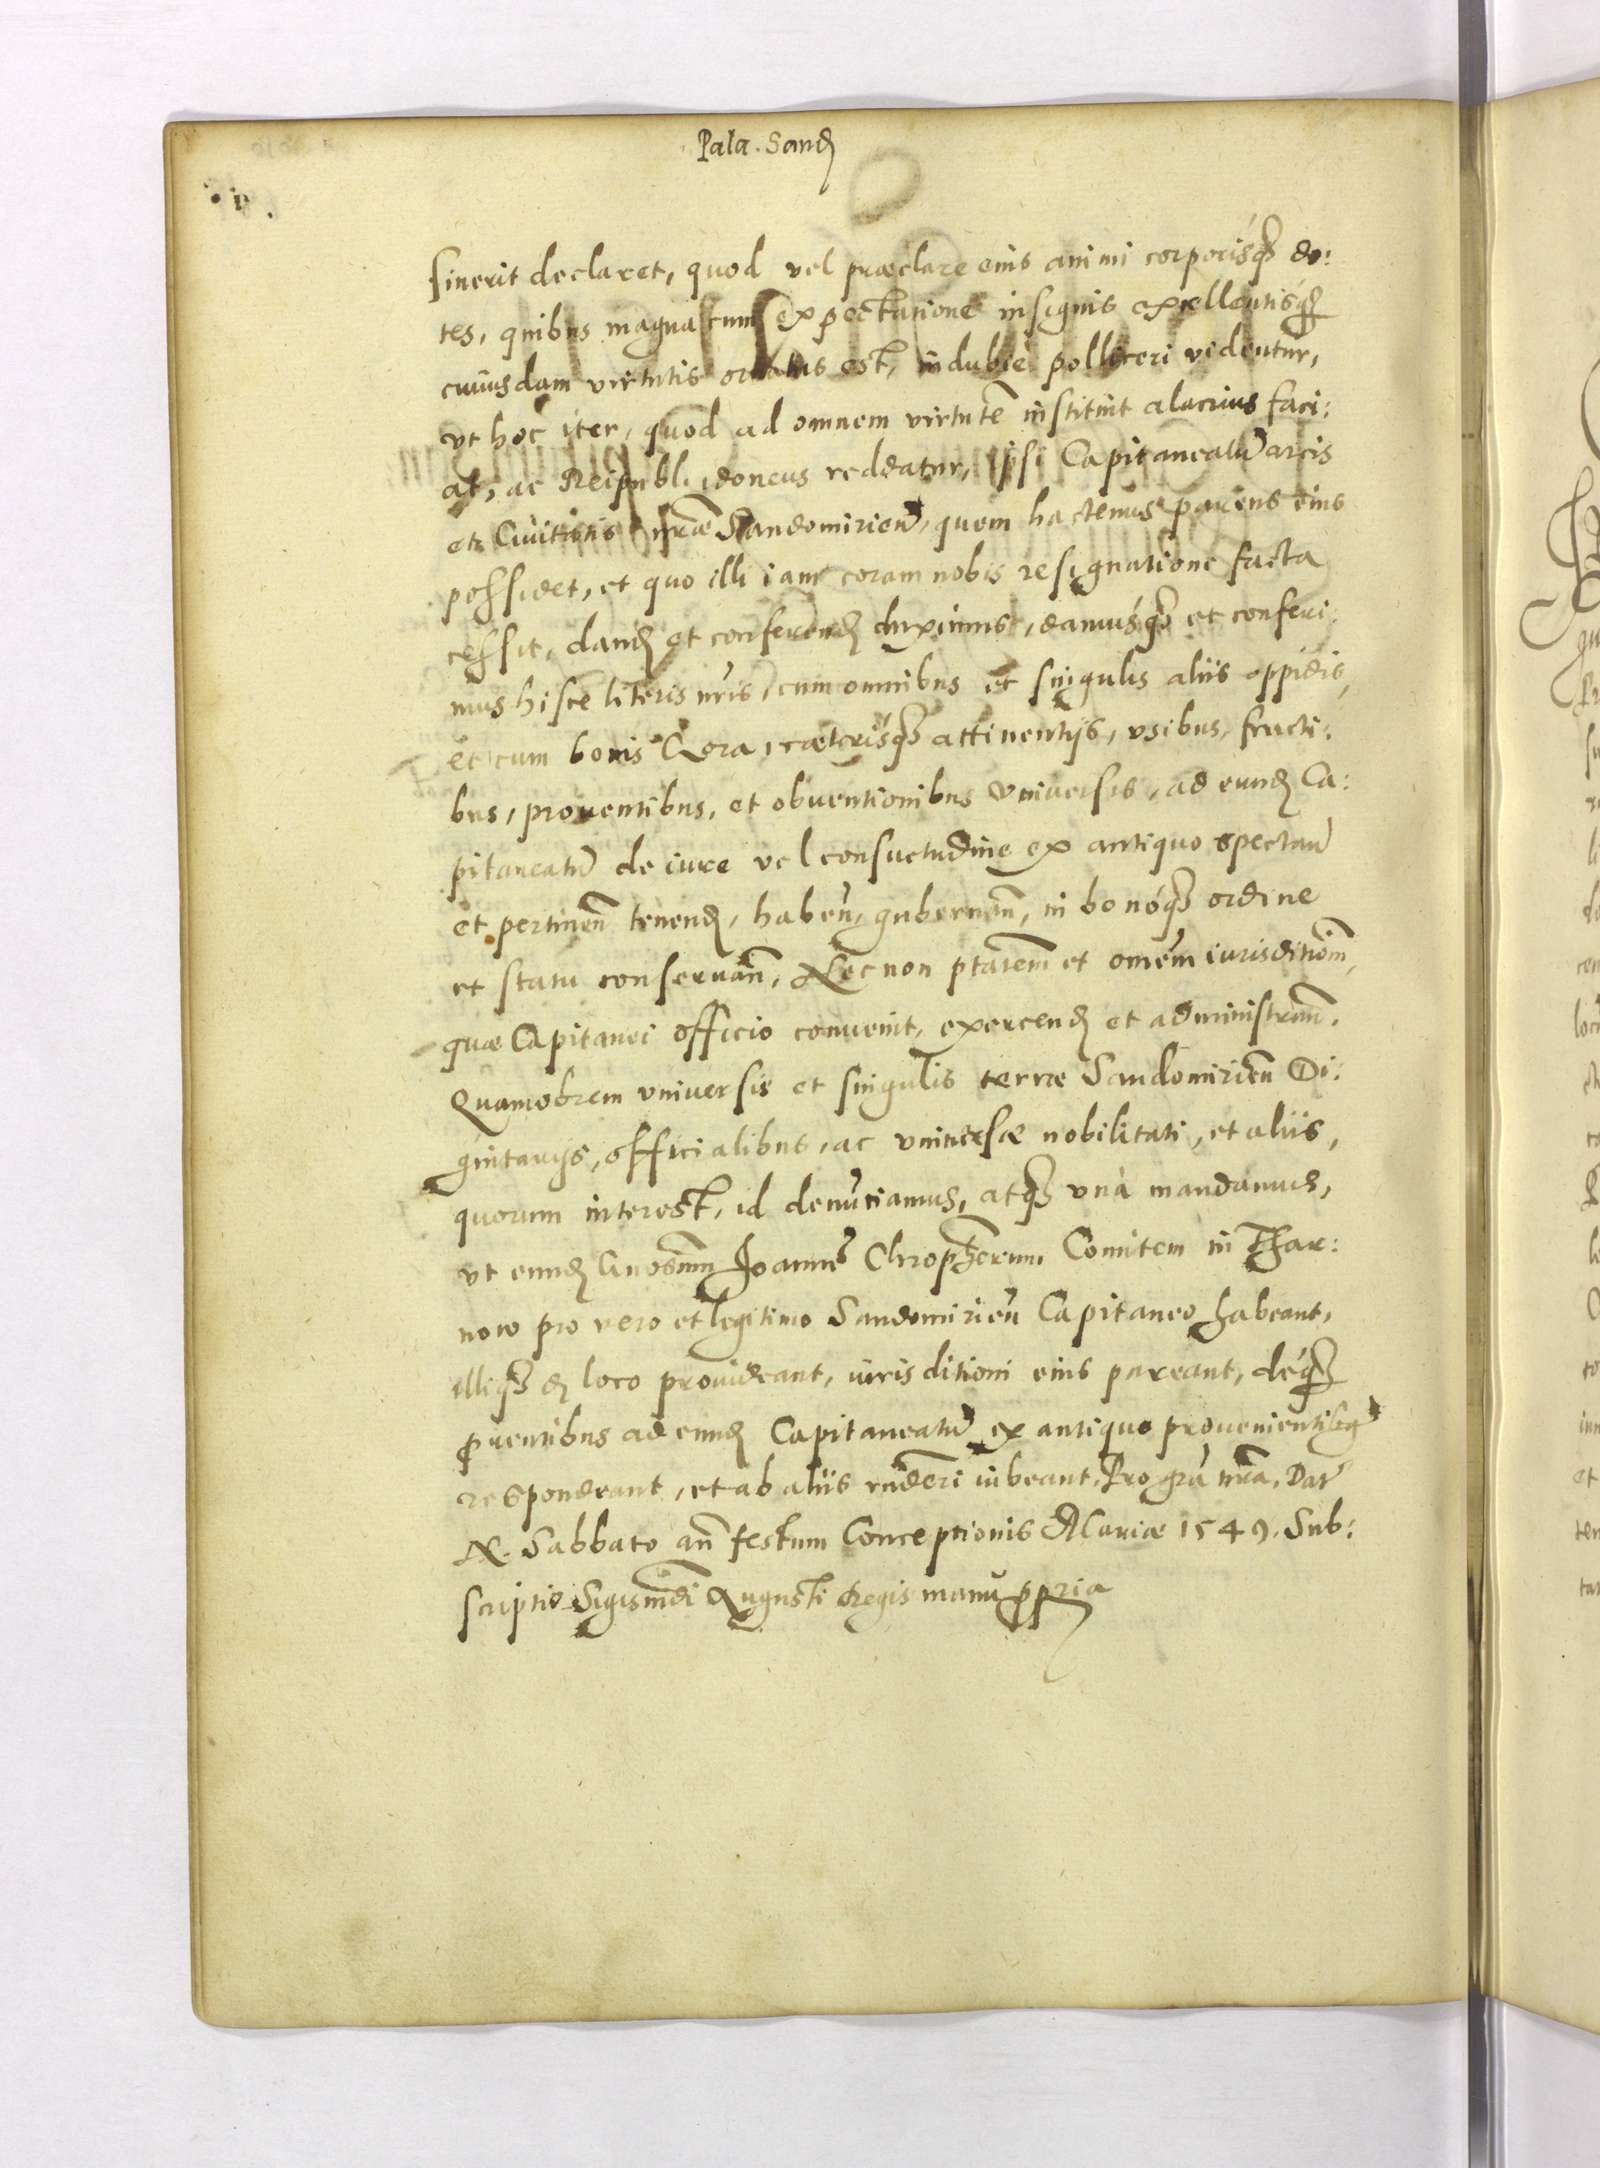 Pala. Sand
sinerit declaret, quod vel præclare eius animi corporisq do:
tes, quibus magna cum expectatione insignis excellentisq
cuiusdam virtutis ornatus est, indubie polliceri videntur,
vt hoc iter, quod ad omnem virtutẽ instituit alacrius faci:
at, ac Reipubl: idoneus reddatur, ipsi Capitaneatũ arcis
et Ciuitatis nrãe Sandomirień, quem hactenus parens eius
possidet, et quo illi iam coram nobis resignatione facta
cessit, dand et conferend duximus, damusq et conferi
mus hisce literis nris, cum omnibus et singulis aliis oppidis,
et cum bonis Qora, cæterisq attinentijs, vsibus, fructi:
bus, prouentibus, et obuentionibus vniuersis, ad eund Ca:
pitaneatũ de iure vel consuetudine ex antiquo spectań
et pertineñ tenend, habeń, guberneñ, in bonoq ordine
et statu conseruañ, Necnon ptatem et omem iurisditiom,
quæ Capitanei officio conuenit, exercend et administrañ.
Quamobrem vniuersis et singulis terræ Sandomirień Di:
gnitarijs, officialibus, ac vniuersæ nobilitati, et aliis,
quorum interest, id denuciamus, atq vnà mandamus,
vt eund Gnosum Joannẽ Chrophorum Comitem in Thar:
now pro vero et legitimo Sandomirień Capitaneo habeant,
illiq d loco prouideant, iurisditioni eius pareant, deq
puentibus ad eund Capitaneatũ ex antiquo prouenientibq
respondeant, et ab aliis rnderi iubeant. Pro gra nra. Dat
X. Sabbato añ festum Conceptionis Mariæ 1549. Sub:
scriptio Sigismdi Augusti Regis manu ppria